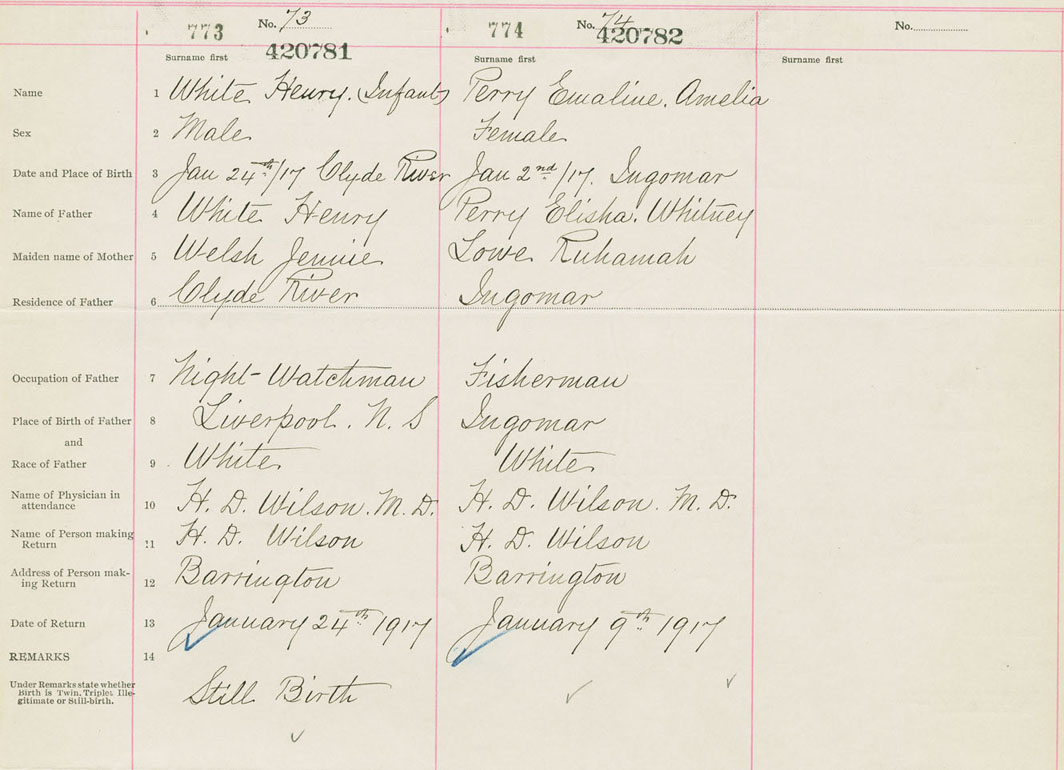 773 No. 73
420781
774 No. 74
420782
No.
Surname first Surname first Surname first
Name 1 White Henry. (Infant) Perry Emaline. Amelia
Sex 2 Male Female
Date and Place of Birth 3 Jan 24th/17 Clyde River Jan 2nd/17. Ingomar
Name of Father 4 White Henry Perry Elisha. Whitney
Maiden name of Mother 5 Welsh Jennie Lowe Ruhamah
Residence of Father 6 Clyde River Ingomar
Occupation of Father 7 Night-Watchman Fisherman
Place of Birth of Father 8 Liverpool. N. S Ingomar
and
Race of Father 9 White White
Name of Physician in
attendance 10 H. D. Wilson. M. D. H. D. Wilson. M. D.
Name of Person making
Return 11 H. D. Wilson H. D. Wilson
Address of Person mak-
ing Return 12 Barrington Barrington
Date of Return 13 January 24th 1917 January 9th 1917
REMARKS 14
Under Remarks state whether
Birth is Twin, Triplet Ille-
gitimate or Still-birth.
Still Birth